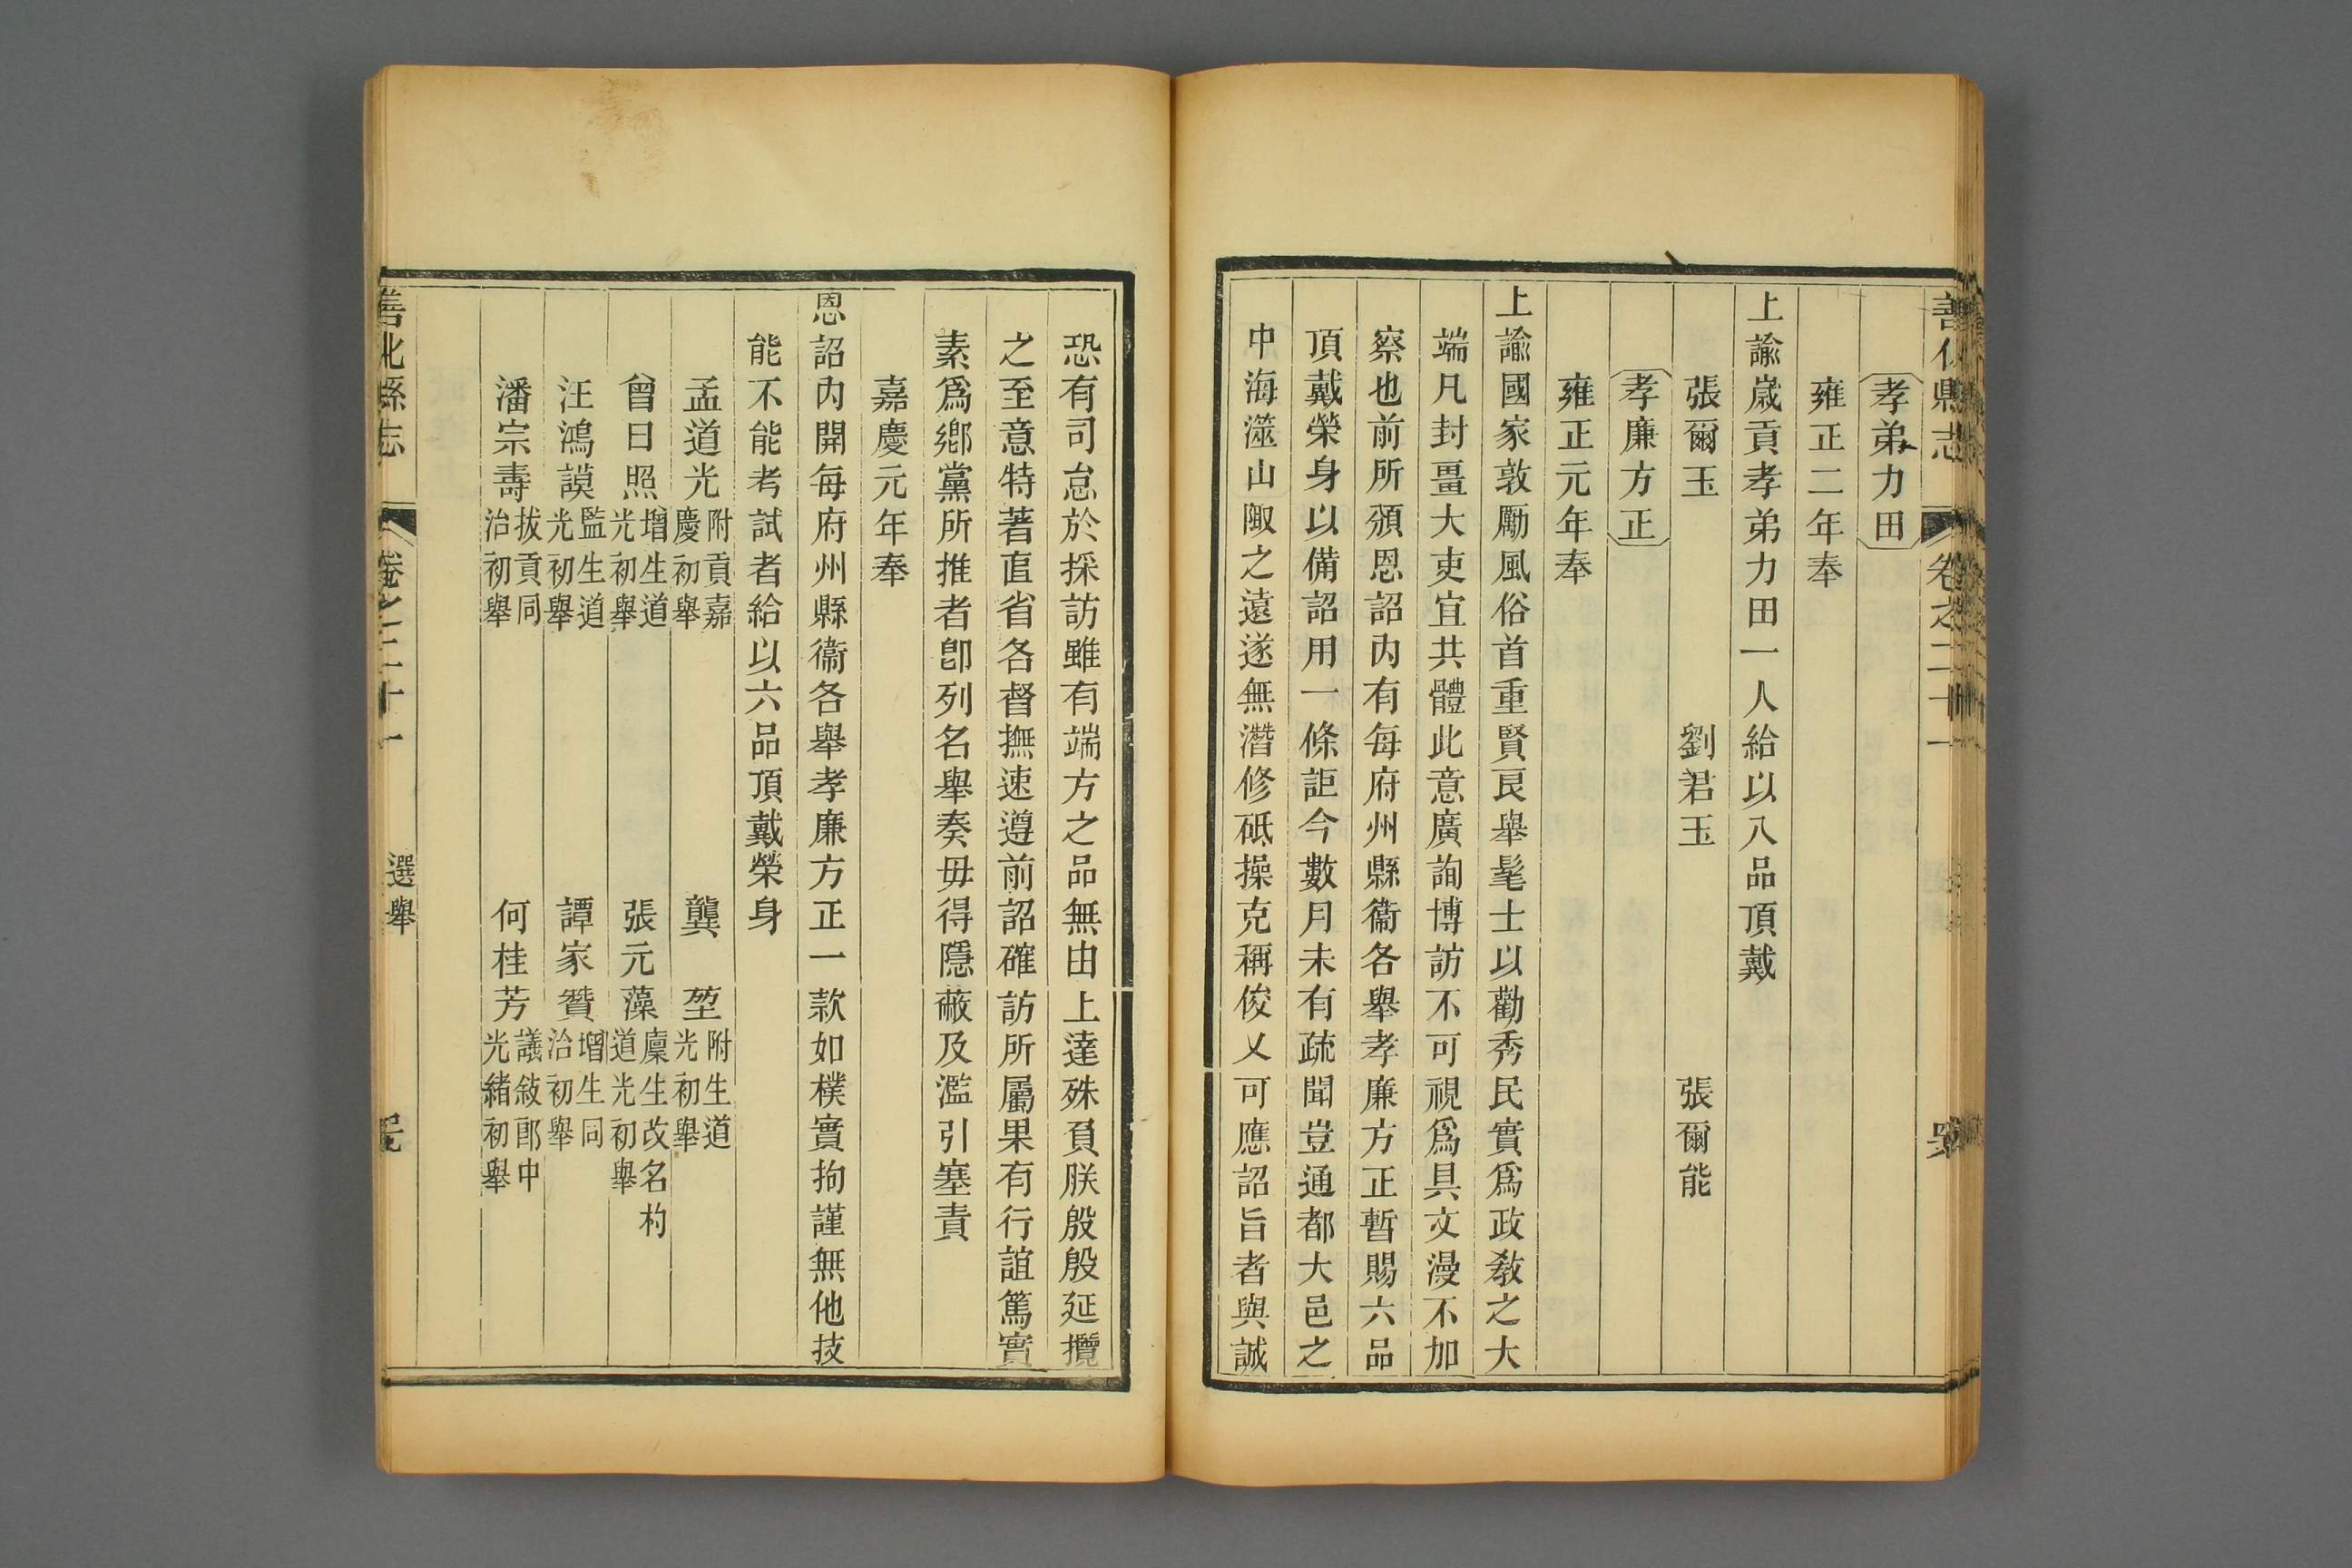 善化縣志 卷之二十一
孝弟力田
雍正二年奉
上諭歲貢孝弟力田一人給以八品頂戴
張爾玉 劉君玉 張爾能
孝廉方正
雍正元年奉
上諭國家敦勵風俗首重賢良舉髦士以勸秀民實爲政敎之大
端凡封畺大吏宜共體此意廣詢博訪不可視爲具文漫不加
察也前所頒恩詔內有每府州縣衞各舉孝廉方正暫賜六品
頂戴榮身以備詔用一條詎今數月未有疏聞豈通都大邑之
中海澨山陬之遠遂無潛修砥操克稱俊乂可應詔旨者與誠
恐有司怠於採訪雖有端方之品無由上達殊負朕殷殷延攬
之至意特著直省各督撫速遵前詔確訪所屬果有行誼篤實
素爲鄉黨所推者卽列名舉奏毋得隱蔽及濫引塞責
嘉慶元年奉
恩詔內開每府州縣衞各舉孝廉方正一款如樸實拘謹無他技
能不能考試者給以六品頂戴榮身
孟道光附貢嘉慶初舉 龔 堃附生道光初舉
曾日照增生道光初舉 張元藻廩生改名杓道光初舉
汪鴻謨監生道光初舉 譚家贊增生同治初舉
潘宗壽拔貢同治初舉 何桂芳議敍郎中光緒初舉
善化縣志 卷之二十一 選舉